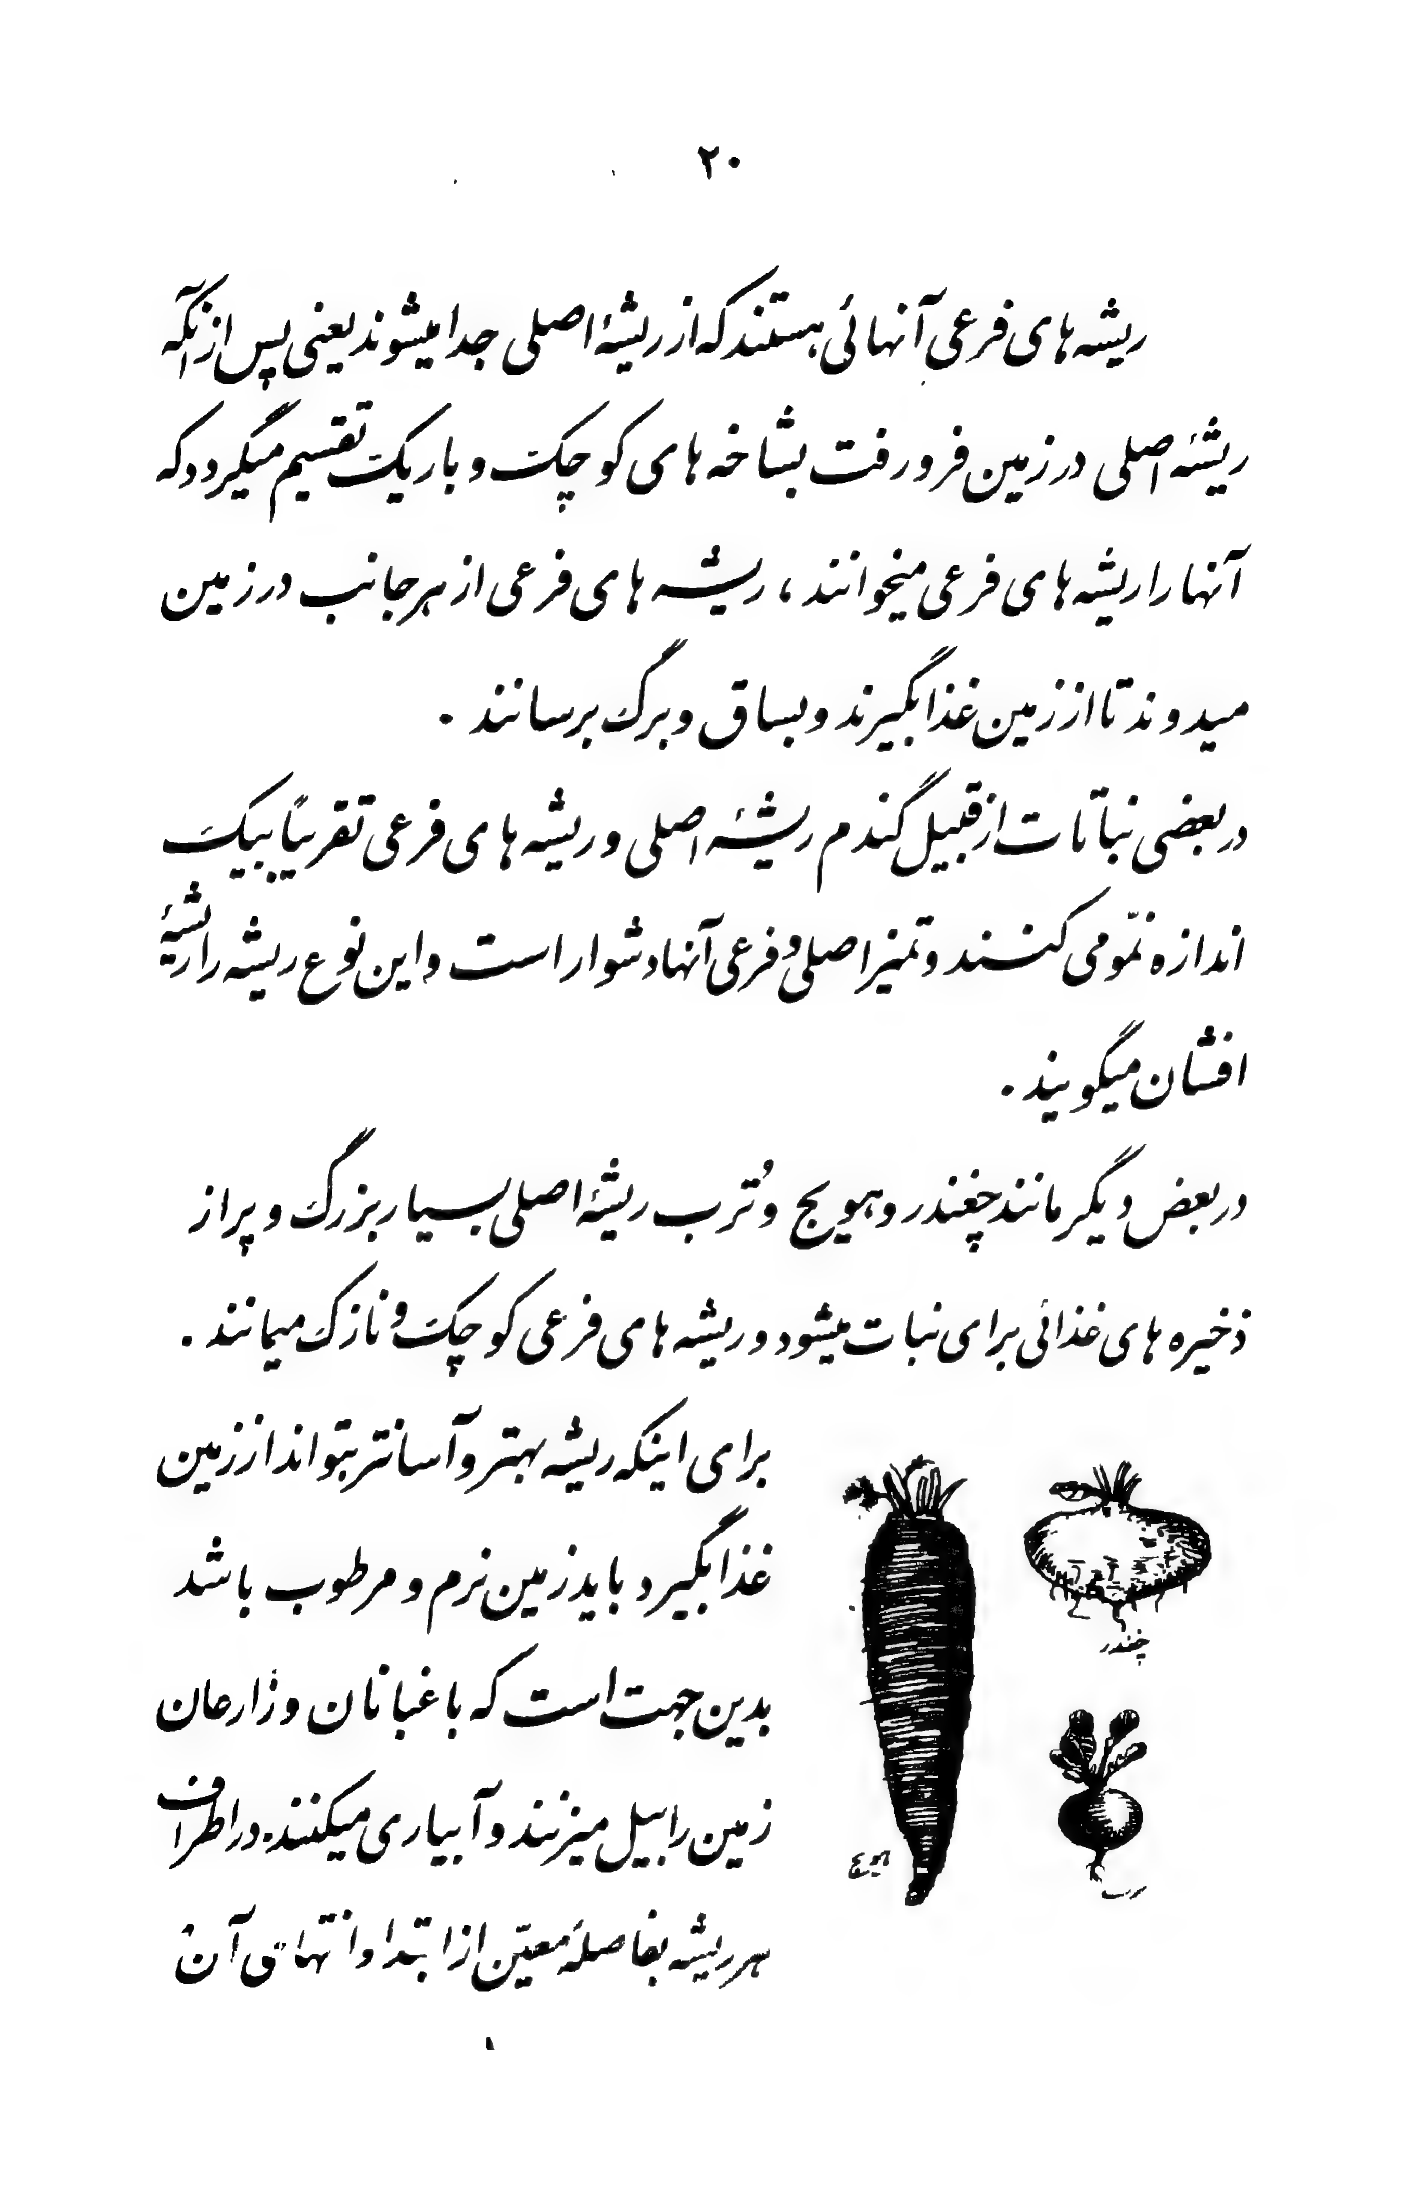 ۲۰
ریشه های فرعی آنهائی هستند که از ریشهٔ اصلی جدا میشوند یعنی پس از آنکه
ریشهٔ اصلی در زمین فرو رفت بشاخه های کوچک و باریک تقسیم میگردد که
آنها را ریشه های فرعی میخوانند ، ریشه های فرعی از هر جانب در زمین
میدوند تا از زمین غذا بگیرند و بساق و برگ برسانند .
در بعضی نباتات از قبیل گندم ریشهٔ اصلی و ریشه های فرعی تقریباً بیک
اندازه نموّ می کنند و تمیز اصلی و فرعی آنها دشوار است و این نوع ریشه را ریشهٔ
افشان میگویند .
در بعض دیگر مانند چغندر و هویج و تُرب ریشهٔ اصلی بسیار بزرگ و پر از
ذخیره های غذائی برای نبات میشود و ریشه های فرعی کوچک و نازک میمانند .
برای اینکه ریشه بهتر و آسانتر بتواند از زمین
غذا بگیرد باید زمین نرم و مرطوب باشد
بدین جهت است که باغبانان و زارعان
زمین را بیل میزنند و آبیاری میکنند . در اطراف
هر ریشه بفاصلهٔ معیّن از ابتدا و انتهای آن
چغندر
هویج
ترب